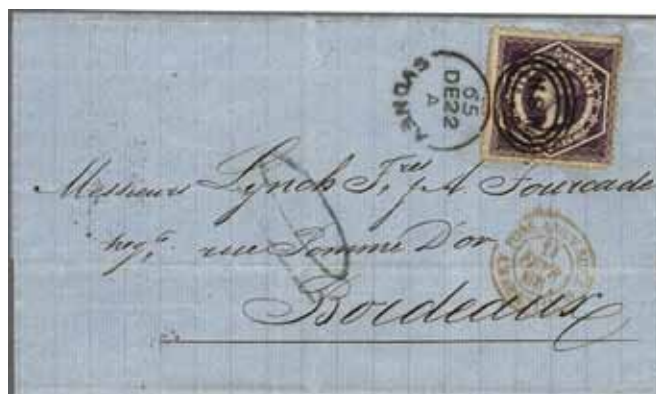 SYDNEY
65
DE 22
A
NSW
Messieurs Lynch Fres & A Fourcade
negts rue Pomme D'or
Bordeaux